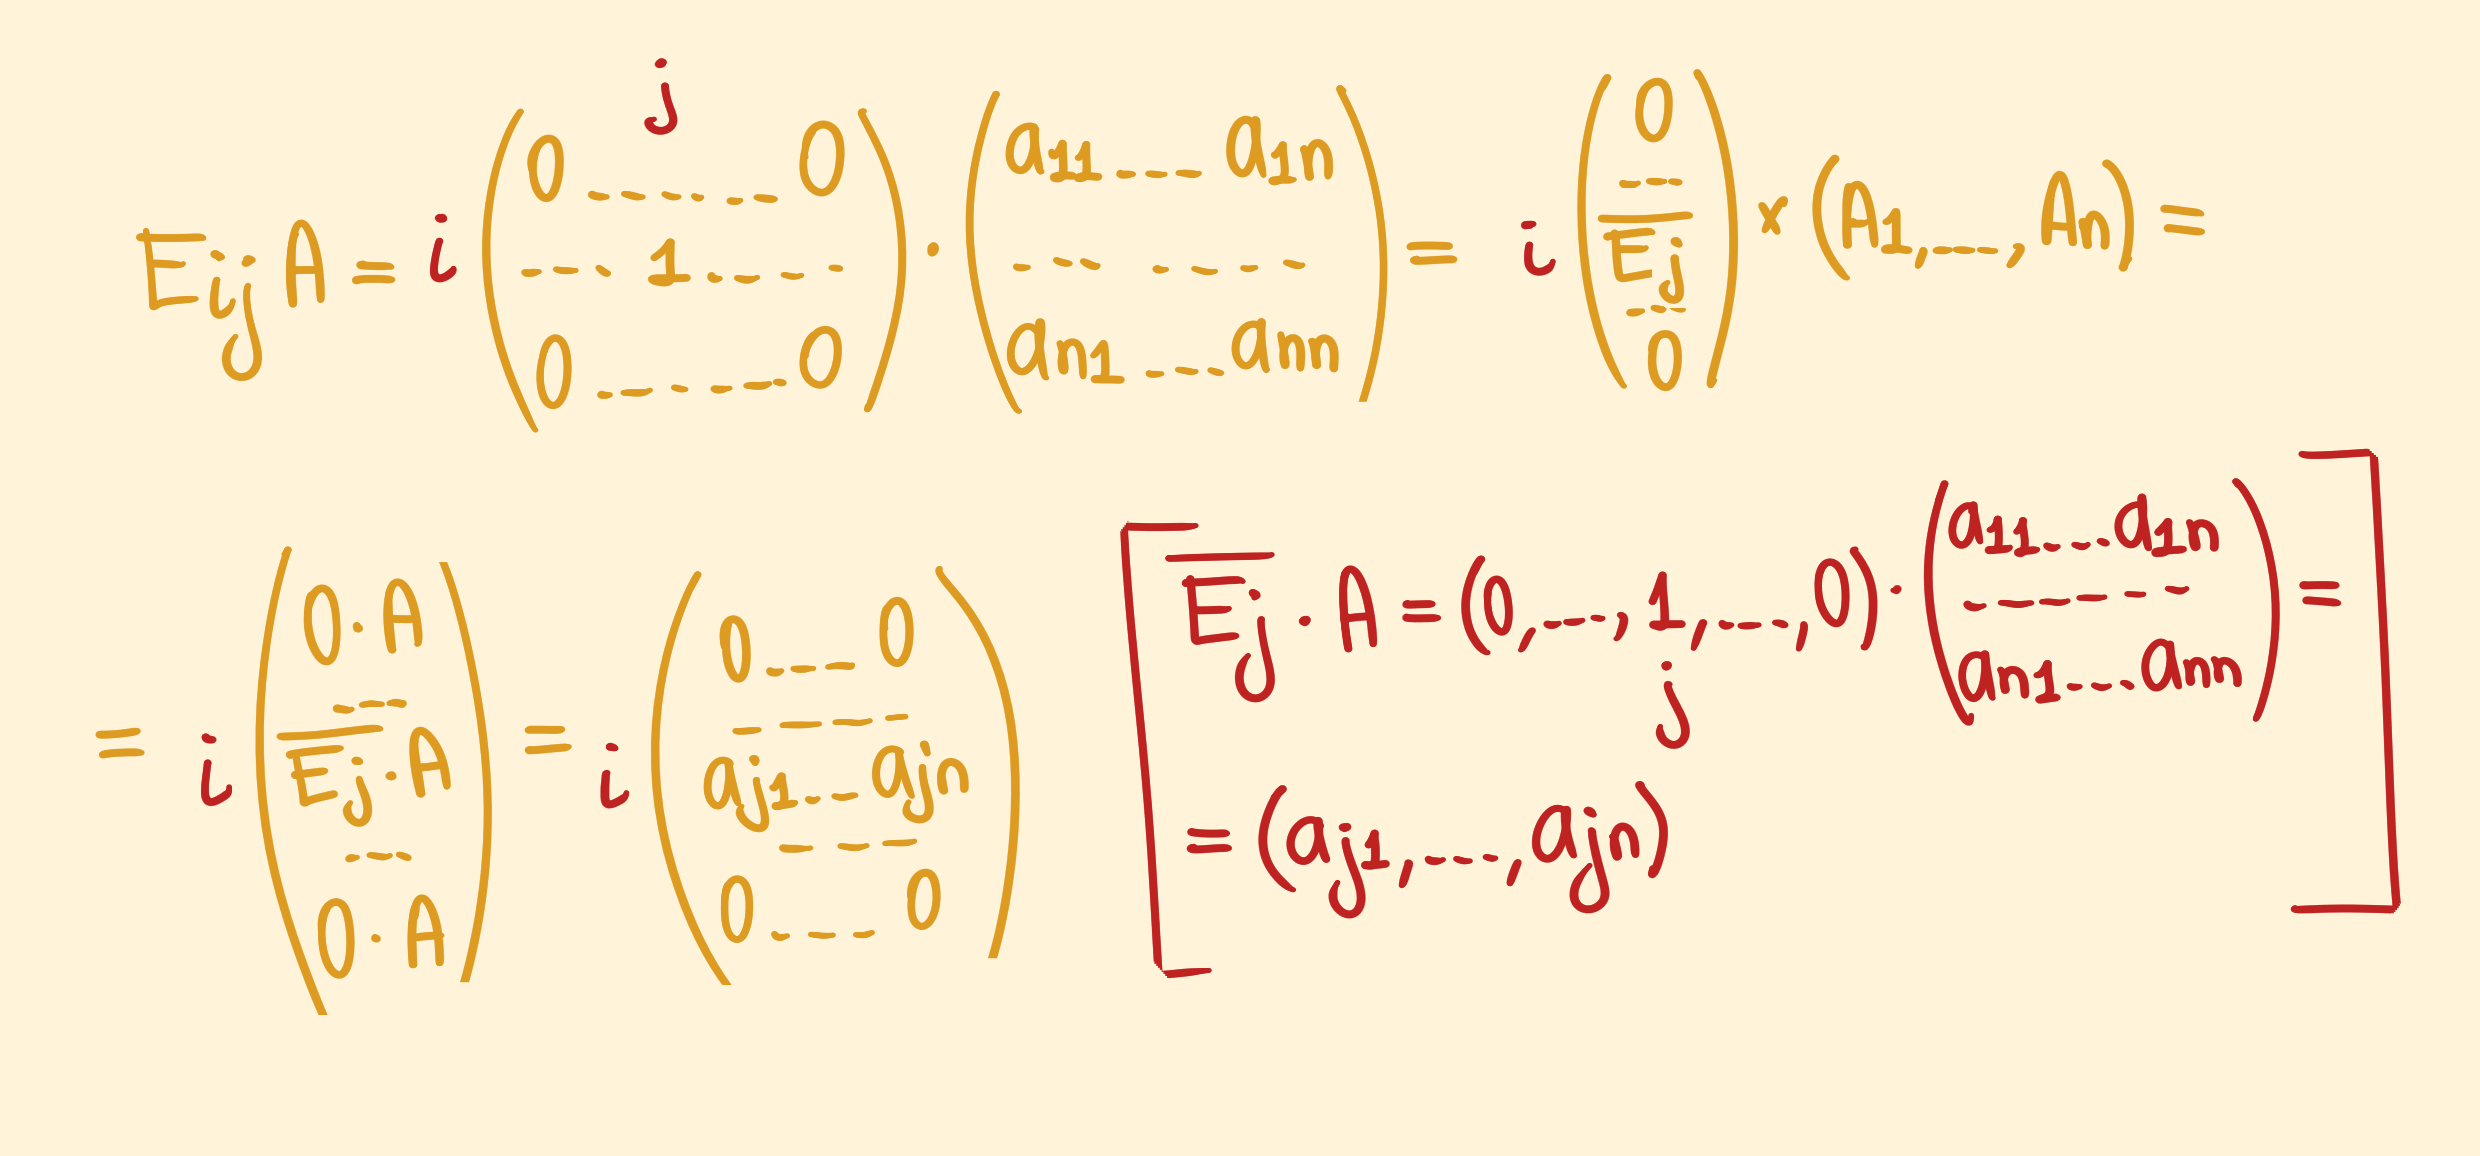 E_{ij} A = i \overset{j}{\begin{pmatrix} 0 & ---- & 0 \\ --- & 1 & ---- \\ 0 & ---- & 0 \end{pmatrix}} \cdot \begin{pmatrix} a_{11} & --- & a_{1n} \\ --- & --- & --- \\ a_{n1} & --- & a_{nn} \end{pmatrix} = i \begin{pmatrix} 0 \\ --- \\ \overline{E_j} \\ --- \\ 0 \end{pmatrix} \times (A_1, ---, A_n) =
= i \begin{pmatrix} 0 \cdot A \\ --- \\ \overline{E_j} \cdot A \\ --- \\ 0 \cdot A \end{pmatrix} = i \begin{pmatrix} 0 & --- & 0 \\ --- & --- & --- \\ a_{j1} & -- & a_{jn} \\ --- & --- & --- \\ 0 & --- & 0 \end{pmatrix}
[ \overline{E_j} \cdot A = (0, ---, \underset{j}{1}, ---, 0) \cdot \begin{pmatrix} a_{11} & --- & a_{1n} \\ --- & --- & --- \\ a_{n1} & --- & a_{nn} \end{pmatrix} =
= (a_{j1}, ---, a_{jn}) ]